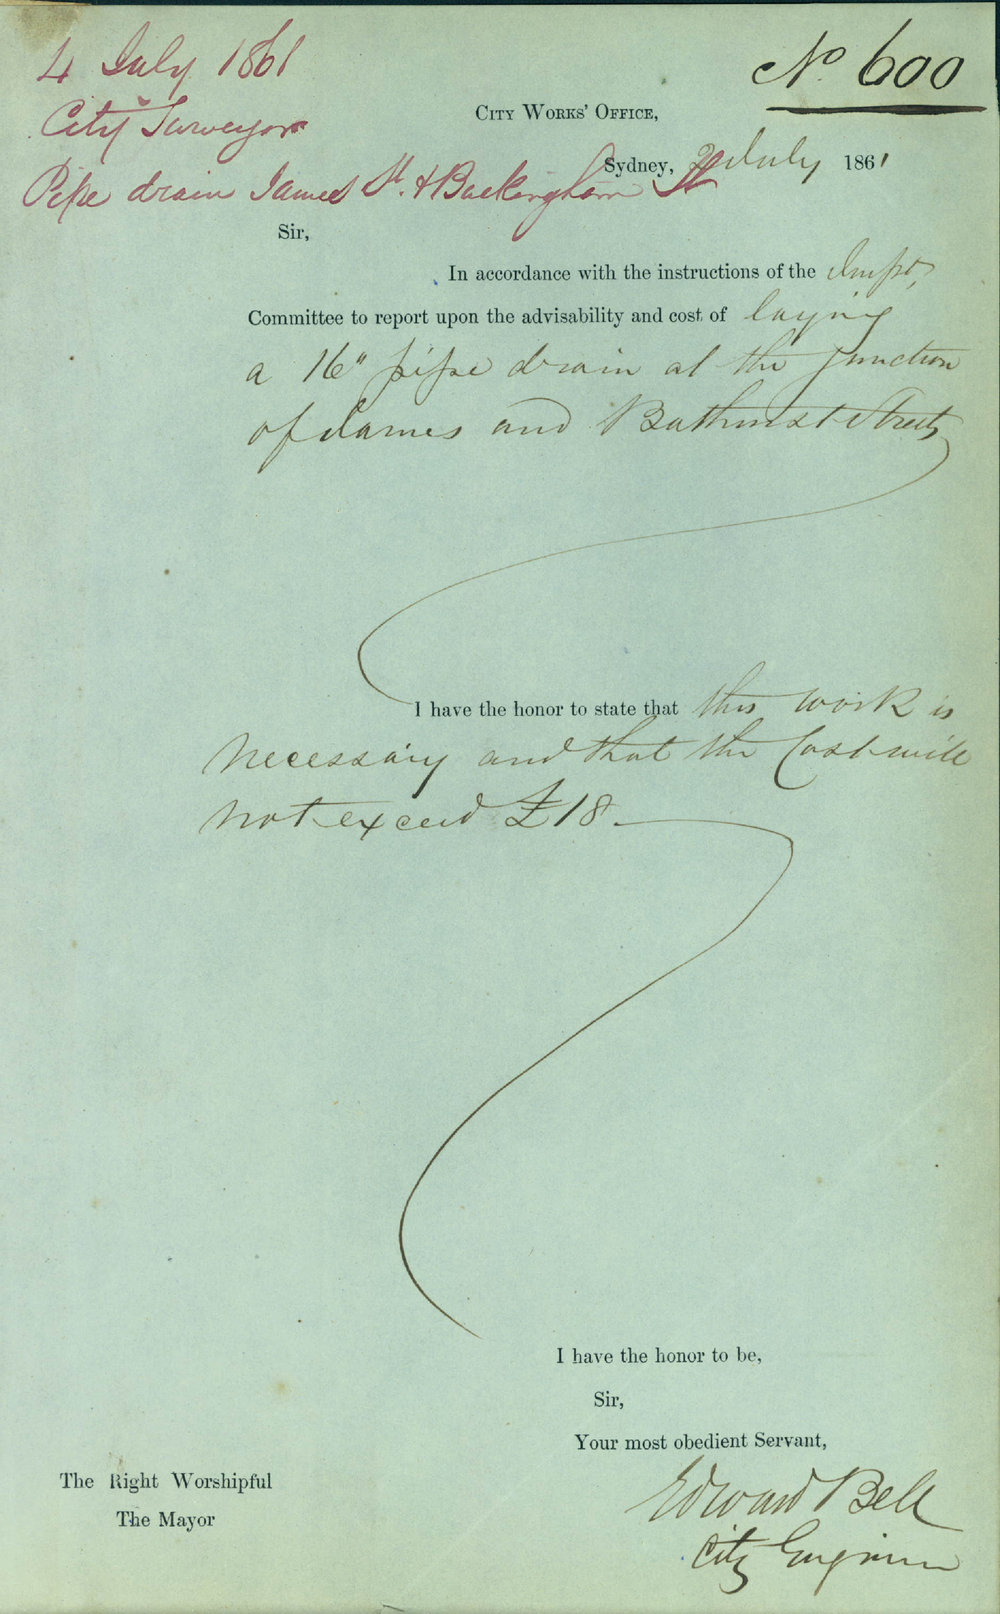 No. 600
4 July 1861
City Surveyor
Pipe drain James St. & Buckingham St
City Works' Office,
Sydney, 2 July 1861
Sir,
In accordance with the instructions of the Impt,
Committee to report upon the advisability and cost of laying
a 16" pipe drain at the junction
of James and Bathurst Streets
I have the honor to state that this work is
necessary and that the Cost will
not exceed £18
I have the honor to be,
Sir,
Your most obedient Servant,
Edward Bell
City Engineer
The Right Worshipful
The Mayor